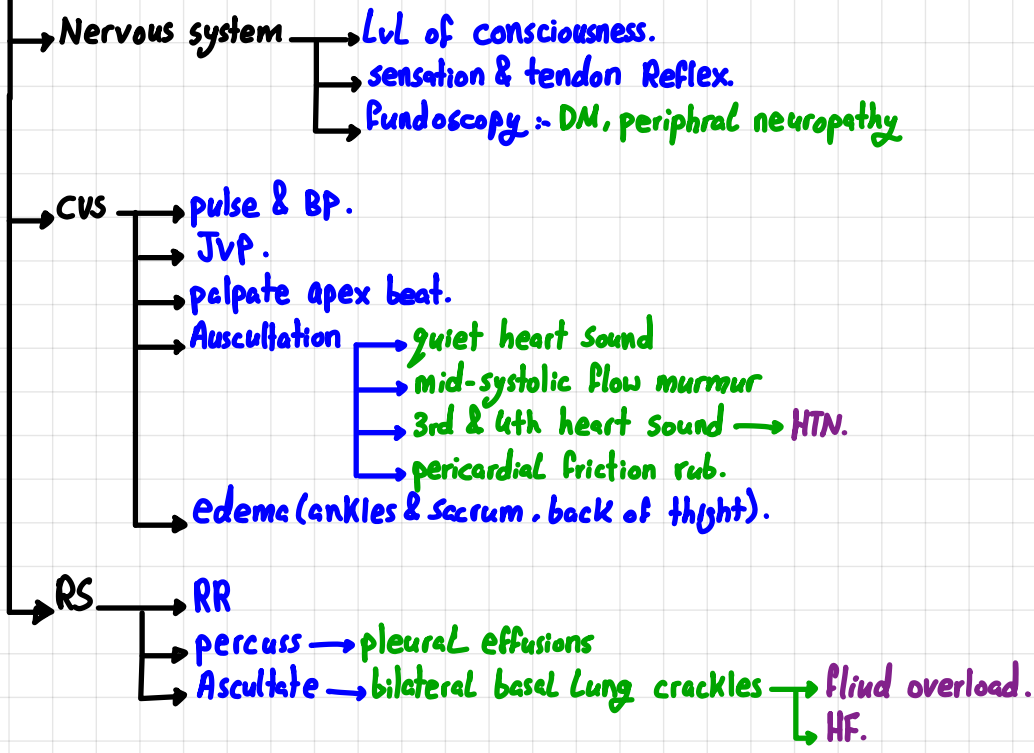 Nervous system LVL of consciousness.
sensation & tendon Reflex.
fundoscopy :- DM, periphral neuropathy
CVS pulse & BP.
JVP.
palpate apex beat.
Auscultation quiet heart sound
mid-systolic flow murmur
3rd & 4th heart sound HTN.
pericardial friction rub.
edema (ankles & sacrum, back of thight).
RS RR
percuss pleural effusions
Ascultate bilateral basal Lung crackles fliud overload.
HF.